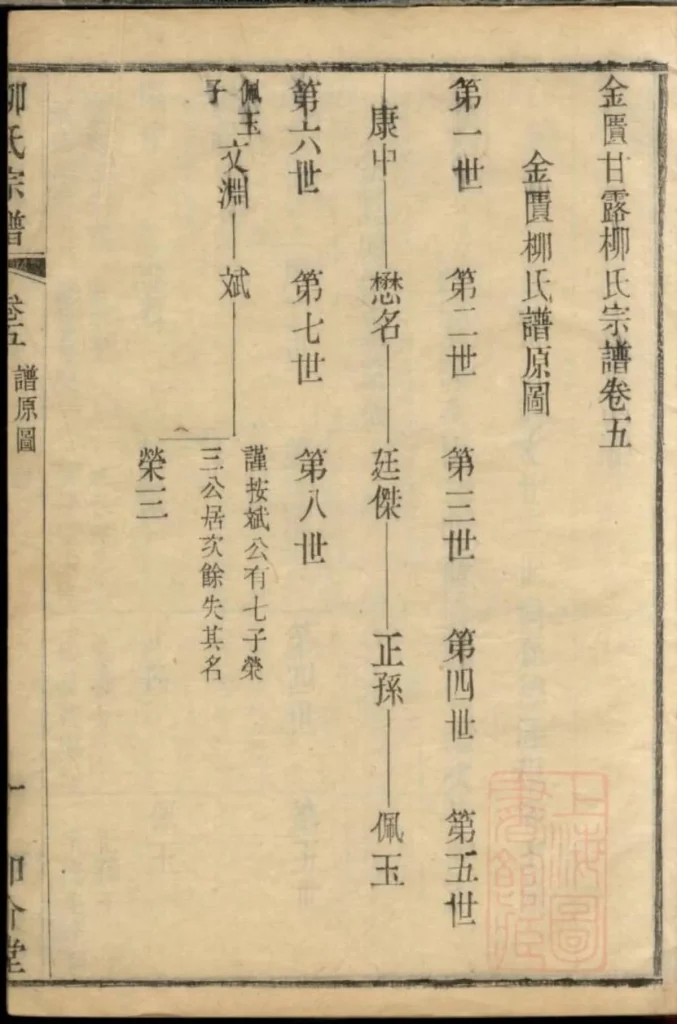 金匱甘露柳氏宗譜卷五
金匱柳氏譜原圖
第一世 第二世 第三世 第四世 第五世
康中 懋名 廷傑 正孫 佩玉
第六世 第七世 第八世
佩玉子 文淵 斌
謹按斌公有七子榮
三公居次餘失其名
榮三
柳氏宗譜 卷五 譜原圖 一
上海圖書館藏